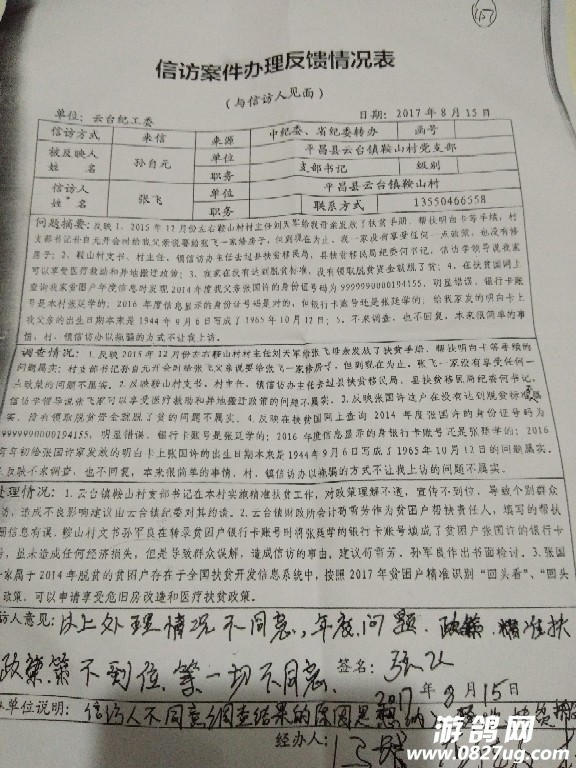 157
信访案件办理反馈情况表
(与信访人见面)
单位：云台纪工委 日期：2017年8月15日
信访方式 来信 来源 中纪委、省纪委转办 函号
被反映人姓名 孙自元 单位 平昌县云台镇鞍山村党支部
职务 支部书记 级别
信访人姓名 张飞 单位 平昌县云台镇鞍山村
职务 联系方式 13550466558
问题摘要：反映1、2015年12月份左右鞍山村村主任刘天军给我母亲发放了扶贫手册、帮扶明白卡等手续，村
支部书记孙自元开会时给我父亲说要给张飞一家修房子，但到现在为止，我一家没有享受任何一点政策，也没有修
房子；2、鞍山村支书、村主任、镇信访办主任去过县扶贫移民局，县扶贫移民局纪委何书记，信访李领导说我家
可以享受医疗救助和异地搬迁政策；3、我家在没有达到脱贫标准，没有领取脱贫资金就脱了贫；4、在扶贫国网上
查询我家贫困户年度信息时发现2014年度我父亲张国许的身份证号码为99999900001941​55，明显错误，银行卡账
号是本村张廷学的；2016年度信息显示的身份证号码是对的，但银行卡账号还是张廷学的；给我家发的明白卡上
我父亲的出生日期本来是1944年9月6日写成了1965年10月12日；5、不来调查，也不回复，本来很简单的事
情，村、镇信访办以拖骗的方式不让我上访。
调查情况：1.反映2015年12月份左右鞍山村村主任刘天军给张飞母亲发放了扶贫手册，帮扶明白卡等手续的
问题属实；村支部书记孙自元开会时给张飞父亲说要给张飞一家修房子，但到现在为止，张飞一家没有享受任何一
点政策的问题不属实。2.反映鞍山村支书、村主任、镇信访办主任去过县扶贫移民局，县扶贫移民局纪委何书记，
信访李领导说张飞家可以享受医疗救助和异地搬迁政策的问题不属实。3.反映张国许这户在没有达到脱贫标
实，没有领取脱贫资金就脱了贫的问题不属实。4.反映在扶贫国网上查询2014年度张国许的身份证号码为
99999900000194155，明显错误，银行卡账号是张廷学的；2016年度信息显示的身银行卡账号还是张廷学的；2016
年年初给张国许家发放的明白卡上张国许的出生日期本来是1944年9月6日写成了1965年10月12日的问题属实。
反映不来调查，也不回复，本来很简单的事情，村、镇信访办以拖骗的方式不让我上访的问题不属实。
处理情况：1.云台镇鞍山村支部书记在本村实施精准扶贫工作，对政策理解不透，宣传不到位，导致个别群众
访，造成不良影响建议由云台镇纪委对其约谈。2.云台镇财政所会计苟菊芳作为贫困户帮扶责任人，填写的帮扶
册信息有误，鞍山村文书孙军良在转录贫困户银行卡账号时将张廷学的银行卡账号填成了贫困户张国许的银行卡
号，虽未造成任何经济损失，但是导致群众误解，造成信访的事由。建议苟菊芳、孙军良作出书面检讨。3.张国
一家属于2014年脱贫的贫困户存在于全国扶贫开发信息系统中，按照2017年贫困户精准识别“回头看”、“回头
政策，可以申请享受危旧房改造和医疗扶贫政策。
访人意见：以上处理情况不同意，年度问题、政策、精准扶
政策不到位等一切不同意。 签名：张飞
2017年8月15日
单位说明：信访人不同意调查结果的原因是
经办人：
游鸽网
www.0827ug.com